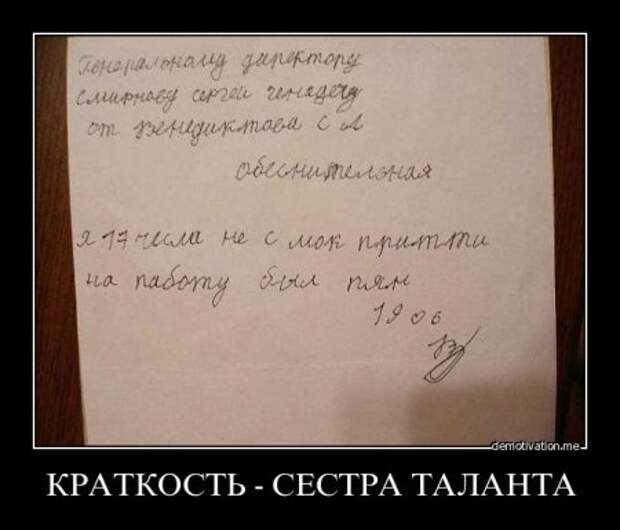 Генералоному директору
Смирнову сергей генадечу
от Венедиктова С Л
обеснителэная
я 17 числа не с мок притти
на работу был пян
19 06
demotivation.me
КРАТКОСТЬ - СЕСТРА ТАЛАНТА